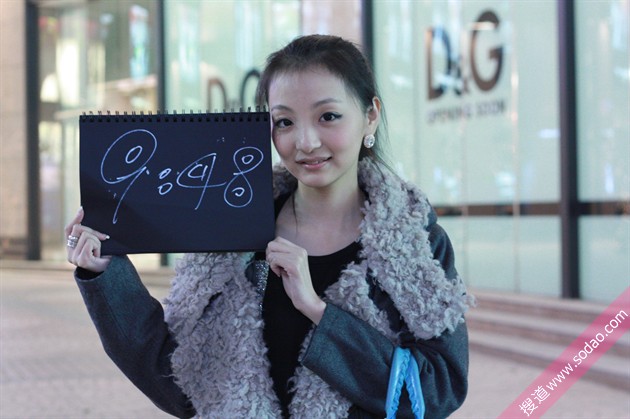 9:48
D&G
OPENING SOON
D&G
搜道 www.sodao.com